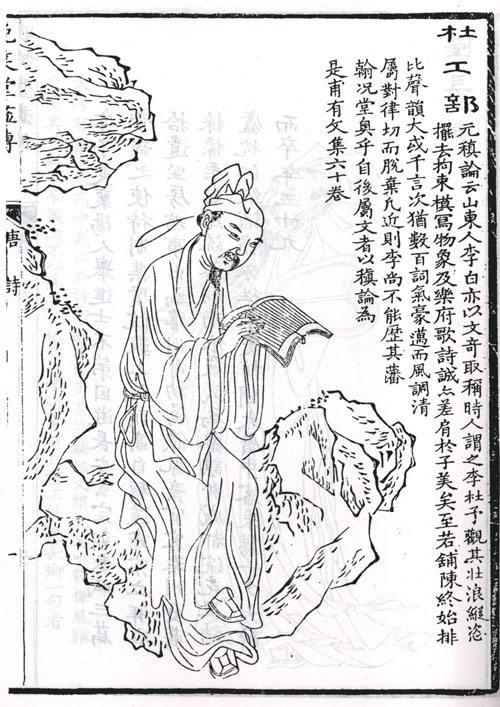 杜工部
元稹論云山東人李白亦以文竒取稱時人謂之李杜予觀其壯浪縱恣
擺去拘束模寫物象及樂府歌詩誠亦差肩於子美矣至若舖陳終始排
比聲韻大或千言次猶數百詞氣豪邁而風調清
屬對律切而脫棄凡近則李尚不能歷其藩
翰况堂奧乎自後屬文者以稹論為
是甫有文集六十卷
笑堂畫傳
唐詩
一